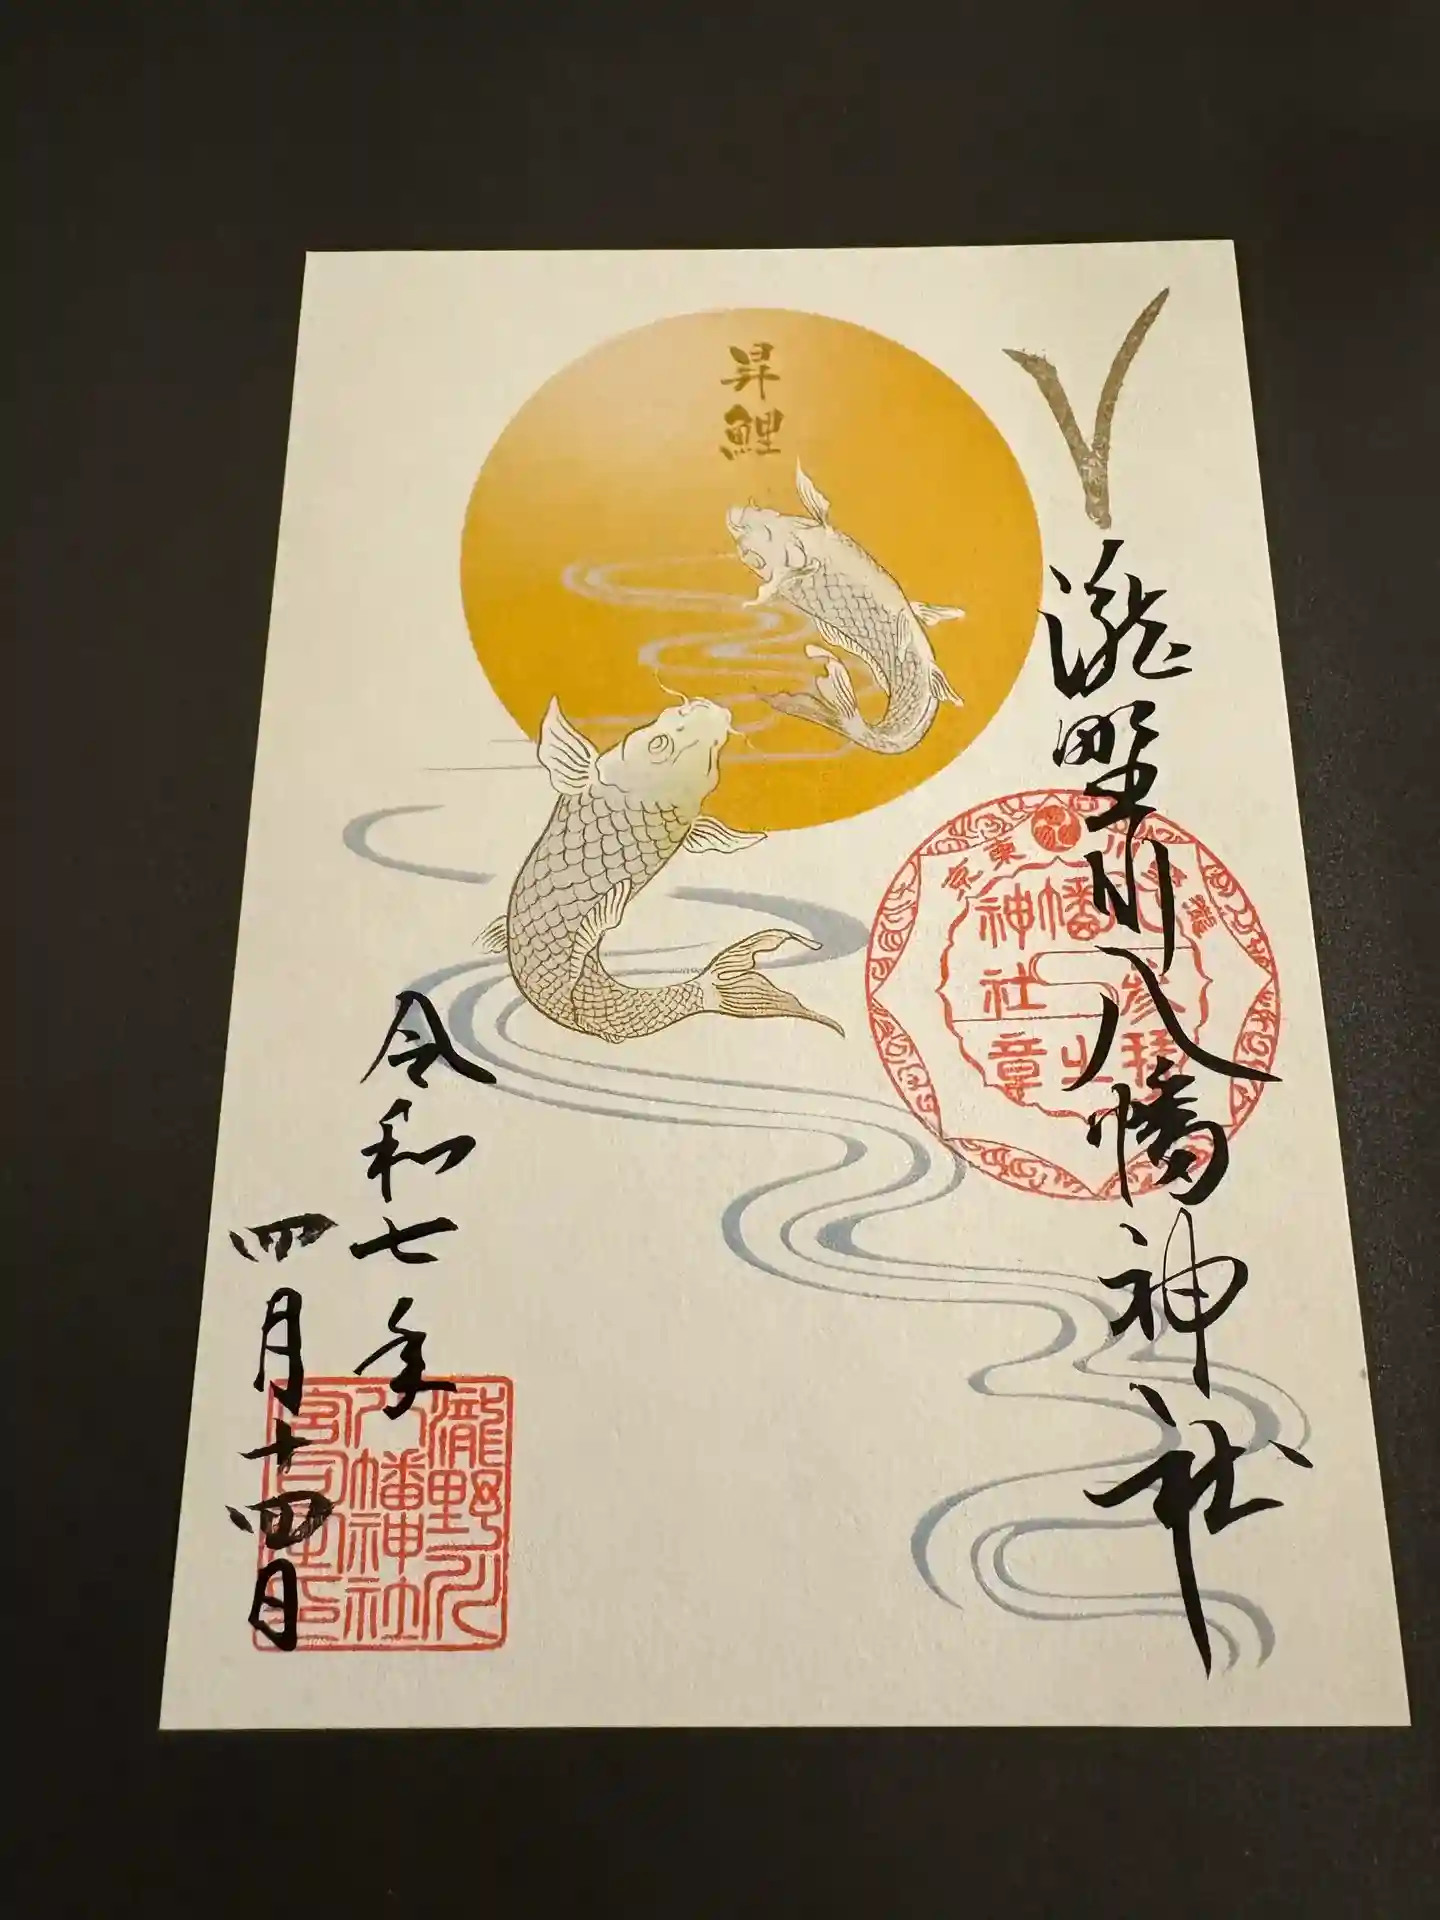 昇鯉
瀧野川八幡神社
東京
瀧野川
八幡神社
参拝之章
令和七年
四月十四日
瀧野川
八幡神社
宮司之印